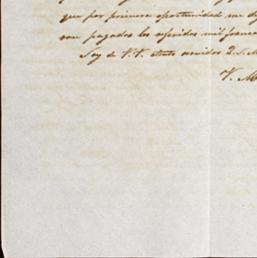 que por primera oportunidad me di
ran pagados los referidos mil franco
Soy de V.V. atento servidor Q.S.M
V. M